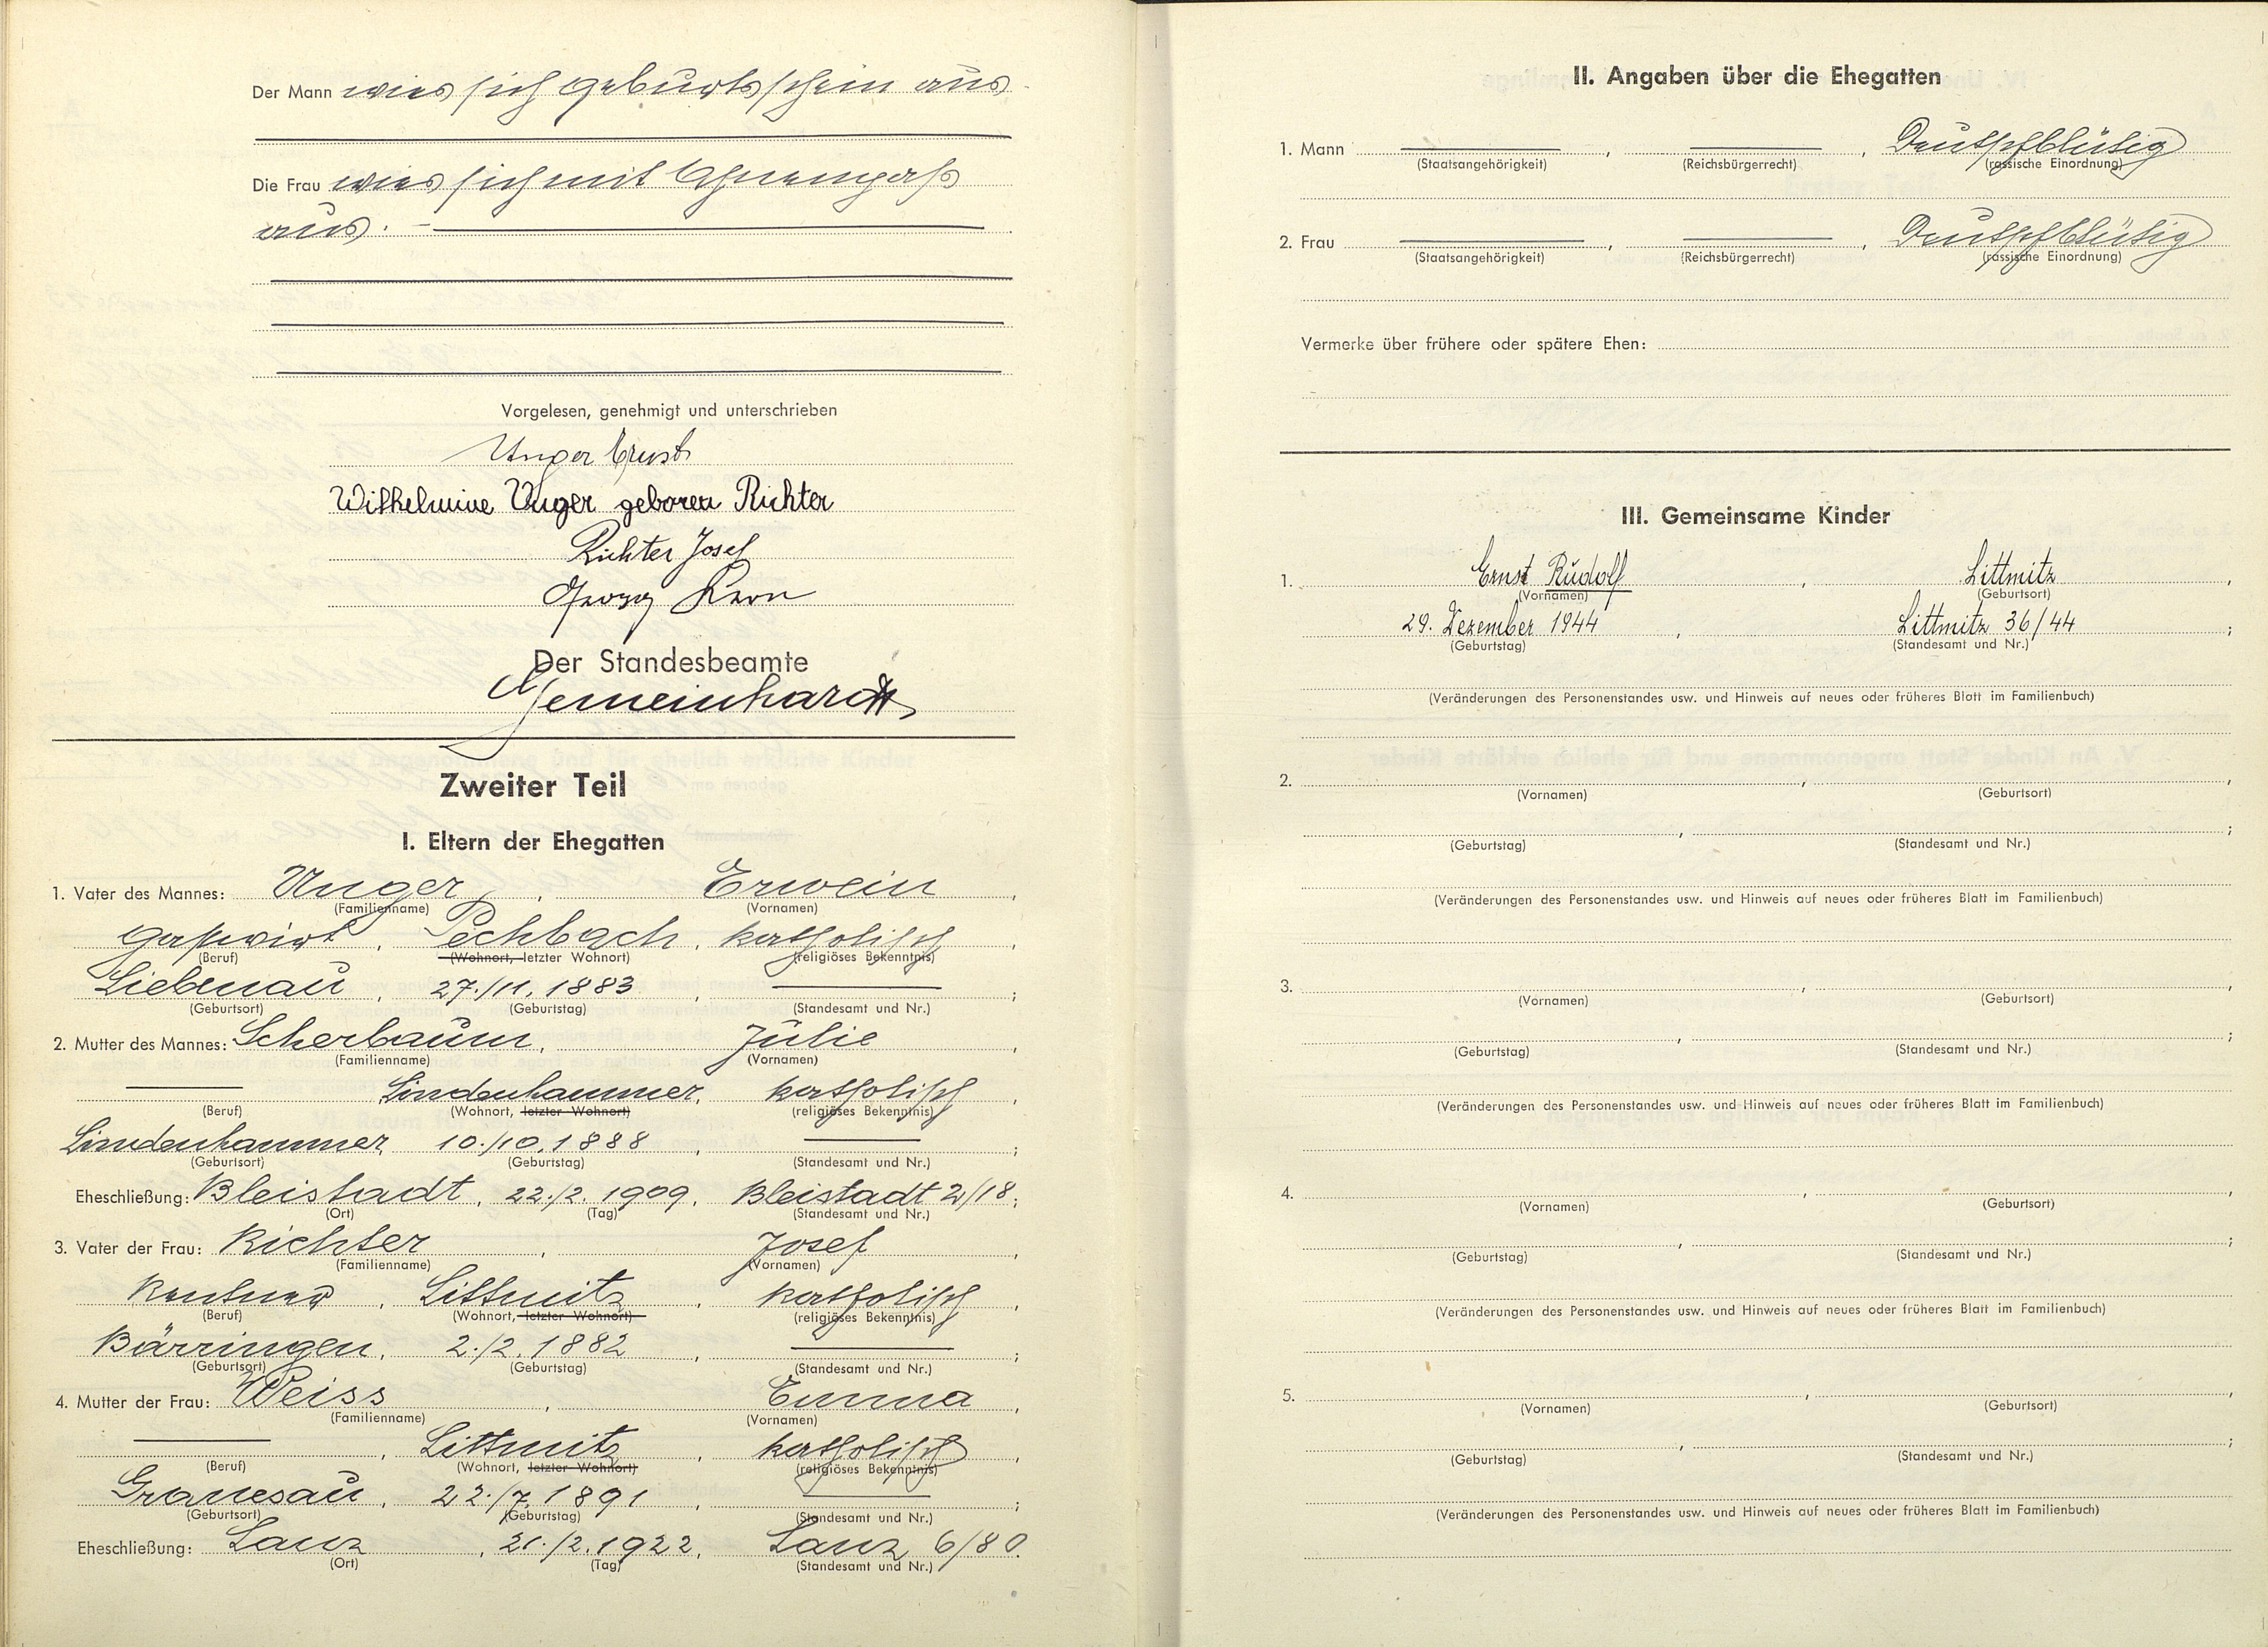 Der Mann wies sich Geburtsschein aus
Die Frau wies sich mit Ahnenpaß
aus. -
Vorgelesen, genehmigt und unterschrieben
Unger Ernst
Wilhelmine Unger geboren Richter
Richter Josef
Georg Kern
Der Standesbeamte
Gemeinhardt
Zweiter Teil
I. Eltern der Ehegatten
1. Vater des Mannes: Unger, Erwein,
(Familienname) (Vornamen)
Gastwirt, Pechbach, katholisch,
(Beruf) (Wohnort, letzter Wohnort) (religiöses Bekenntnis)
Liebenau, 27./11. 1883, ;
(Geburtsort) (Geburtstag) (Standesamt und Nr.)
2. Mutter des Mannes: Scherbaum, Julie,
(Familienname) (Vornamen)
Lindenhammer, katholisch,
(Beruf) (Wohnort, letzter Wohnort) (religiöses Bekenntnis)
Lindenhammer 10./10. 1888, ;
(Geburtsort) (Geburtstag) (Standesamt und Nr.)
Eheschließung: Bleistadt, 22./2. 1909, Bleistadt 2/18;
(Ort) (Tag) (Standesamt und Nr.)
3. Vater der Frau: Richter, Josef,
(Familienname) (Vornamen)
Rentner, Littmitz, katholisch,
(Beruf) (Wohnort, letzter Wohnort) (religiöses Bekenntnis)
Bärringen, 2./2. 1882, ;
(Geburtsort) (Geburtstag) (Standesamt und Nr.)
4. Mutter der Frau: Weiss, Emma,
(Familienname) (Vornamen)
, Littmitz, katholisch,
(Beruf) (Wohnort, letzter Wohnort) (religiöses Bekenntnis)
Granesau, 22./7. 1891, ;
(Geburtsort) (Geburtstag) (Standesamt und Nr.)
Eheschließung: Lanz, 21./2. 1922, Lanz 6/80.
(Ort) (Tag) (Standesamt und Nr.)
II. Angaben über die Ehegatten
1. Mann , , Deutschblütig
(Staatsangehörigkeit) (Reichsbürgerrecht) (rassische Einordnung)
2. Frau , , Deutschblütig
(Staatsangehörigkeit) (Reichsbürgerrecht) (rassische Einordnung)
Vermerke über frühere oder spätere Ehen:
III. Gemeinsame Kinder
1. Ernst Rudolf, Littmitz,
(Vornamen) (Geburtsort)
29. Dezember 1944, Littmitz 36/44;
(Geburtstag) (Standesamt und Nr.)
(Veränderungen des Personenstandes usw. und Hinweis auf neues oder früheres Blatt im Familienbuch)
2. , ,
(Vornamen) (Geburtsort)
, ;
(Geburtstag) (Standesamt und Nr.)
(Veränderungen des Personenstandes usw. und Hinweis auf neues oder früheres Blatt im Familienbuch)
3. , ,
(Vornamen) (Geburtsort)
, ;
(Geburtstag) (Standesamt und Nr.)
(Veränderungen des Personenstandes usw. und Hinweis auf neues oder früheres Blatt im Familienbuch)
4. , ,
(Vornamen) (Geburtsort)
, ;
(Geburtstag) (Standesamt und Nr.)
(Veränderungen des Personenstandes usw. und Hinweis auf neues oder früheres Blatt im Familienbuch)
5. , ,
(Vornamen) (Geburtsort)
, ;
(Geburtstag) (Standesamt und Nr.)
(Veränderungen des Personenstandes usw. und Hinweis auf neues oder früheres Blatt im Familienbuch)